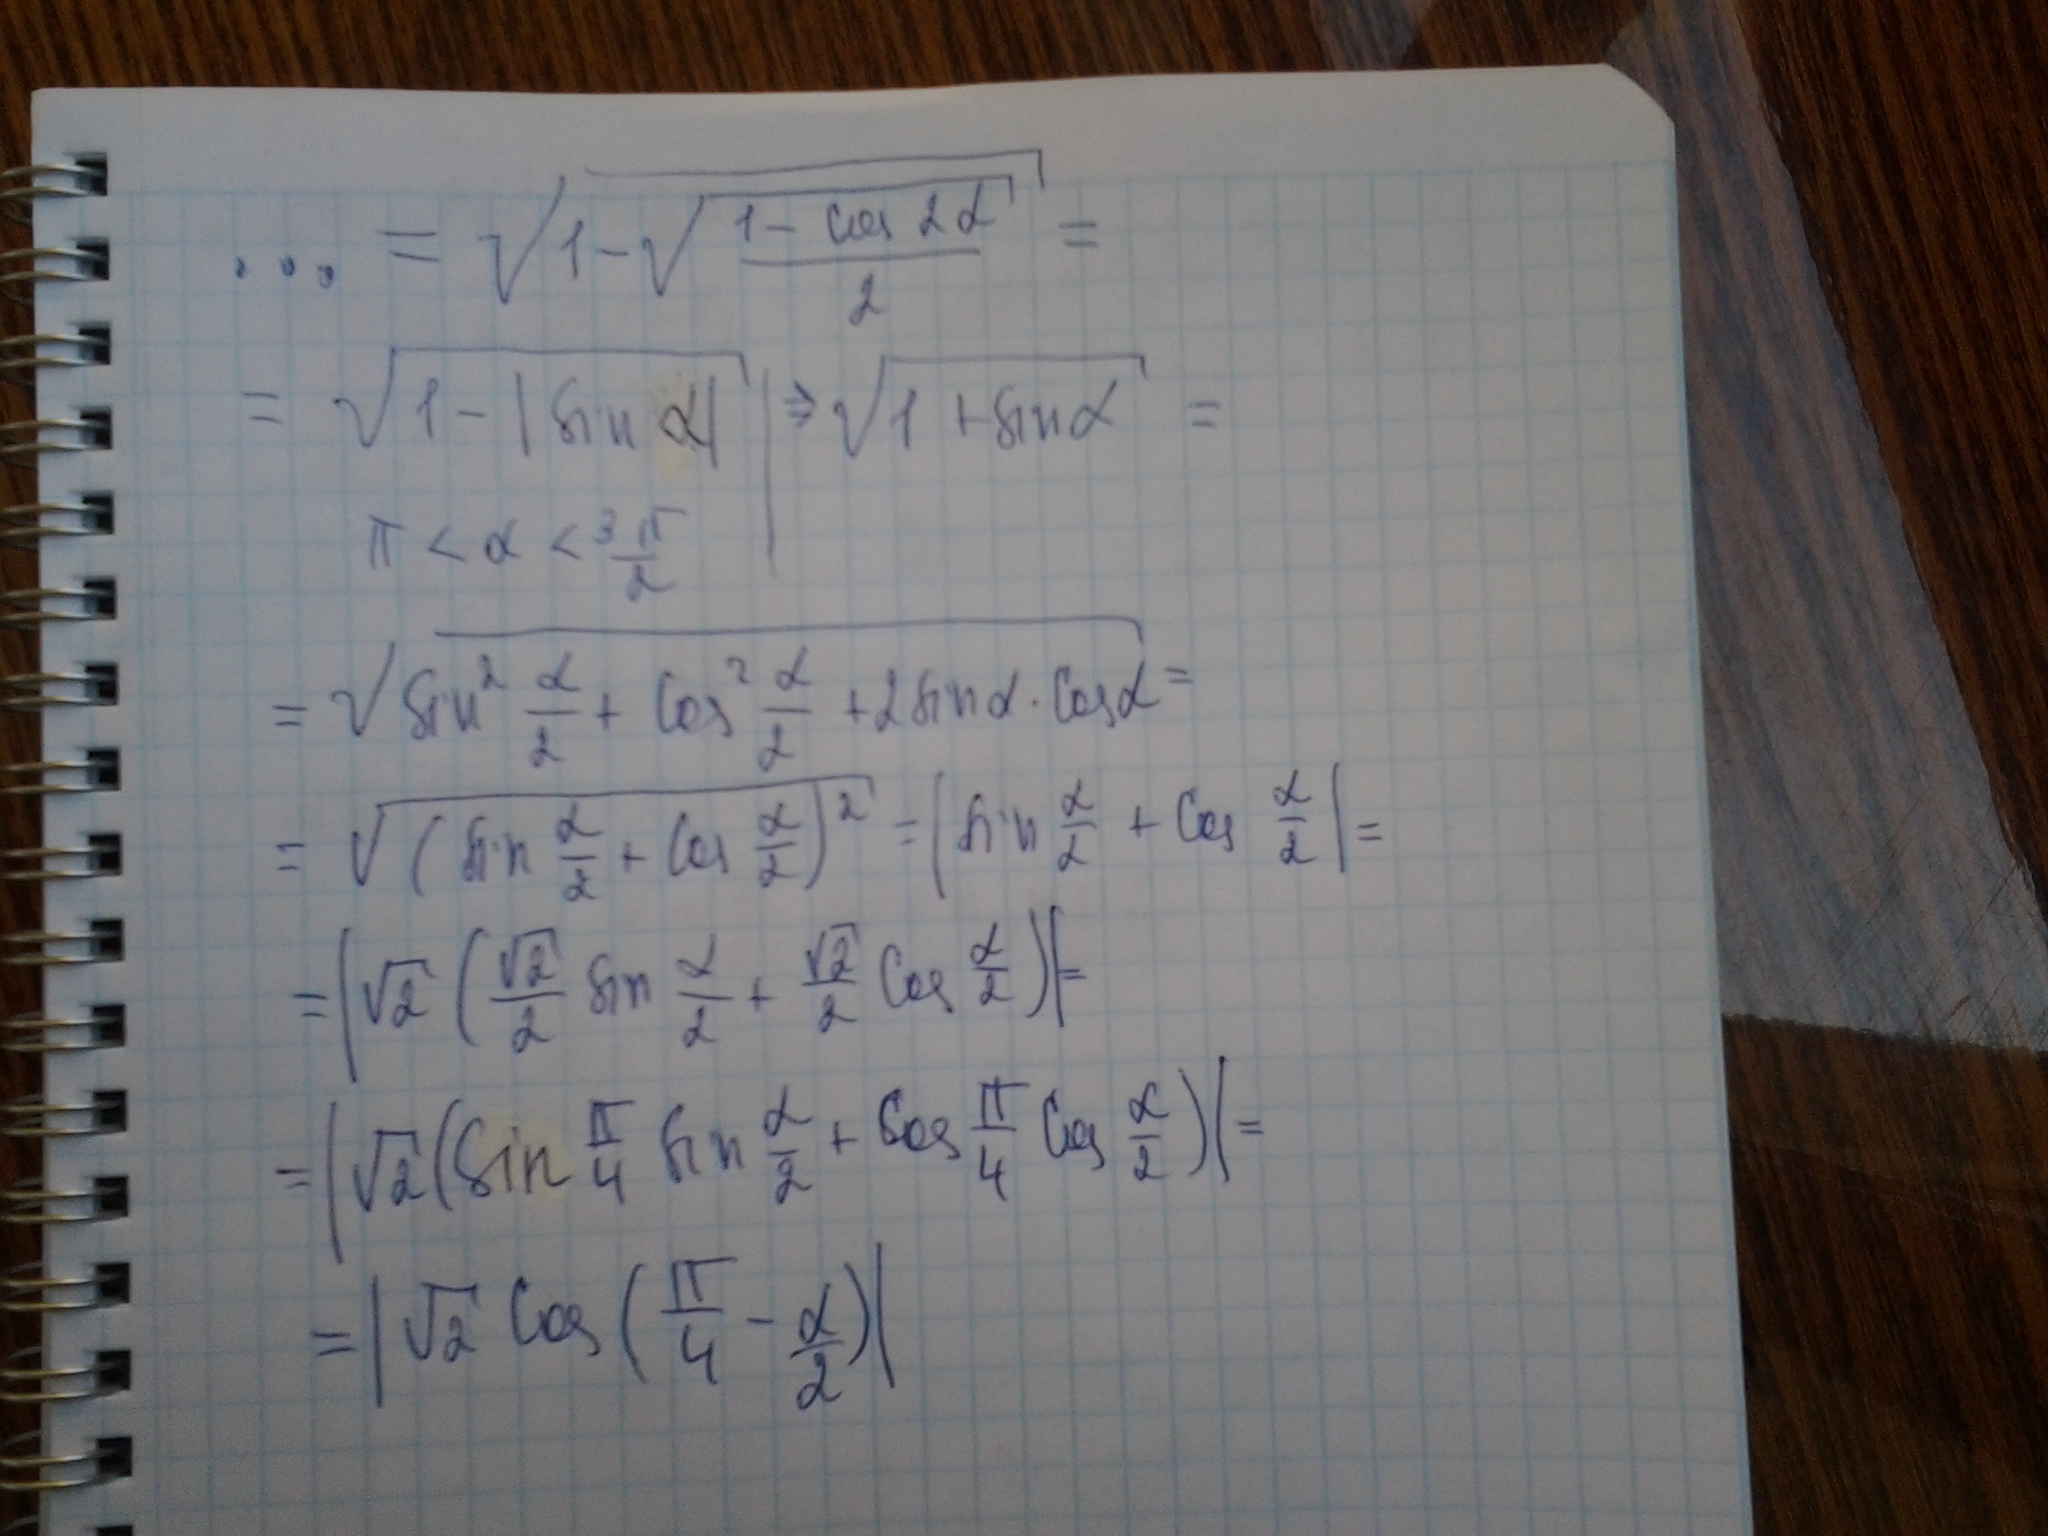 ... = √(1 - √((1 - cos 2α)/2)) =
= √(1 - |sin α|) | ⇒ √(1 + sin α) =
π < α < 3π/2
= √(sin² α/2 + cos² α/2 + 2 sin α · cos α) =
= √((sin α/2 + cos α/2)²) = |sin α/2 + cos α/2| =
= |√2 (√2/2 sin α/2 + √2/2 cos α/2)| =
= |√2 (sin π/4 sin α/2 + cos π/4 cos α/2)| =
= |√2 cos (π/4 - α/2)|